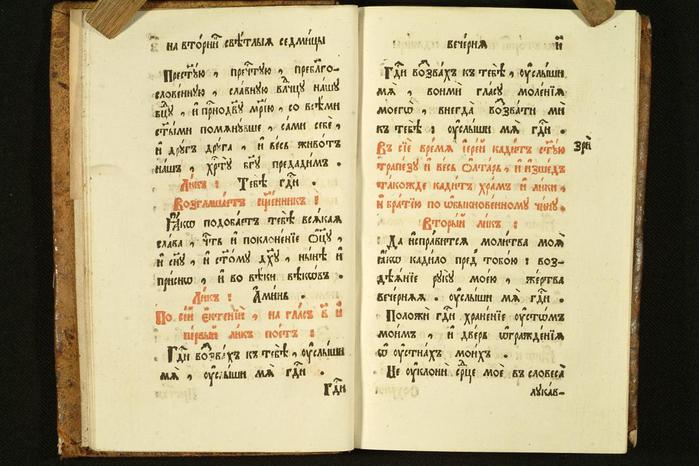 на вто́рникъ свѣ́тлыя седми́цы
Прест҃ую , пречⷭ҇тую , преблго-
слове́нную , сла́вную влⷣчцу на́шу
бцⷣу , и҆ прⷭ҇нодв҃у мр҃і́ю , со всѣ́ми
ст҃ы́ми помяну́вше , са́ми себѐ ,
и҆ дрꙋ́гъ дрꙋ́га , и҆ ве́сь живо́тъ
на́шъ , хрⷭ҇тꙋ̀ бг҃ꙋ предади́мъ .
Ли́къ : Тебѣ̀ гдⷭ҇и .
Возглаша́етъ сщ҃е́нникъ :
Ꙗ҆́кѡ подоба́етъ тебѣ̀ вся́кая
сла́ва , чⷭ҇ть и҆ поклоне́нїе ѻ҆ц҃ꙋ̀ ,
и҆ сн҃ꙋ , и҆ ст҃о́мꙋ дх҃ꙋ , ны́нѣ и҆
при́снѡ , и҆ во вѣ́ки вѣкѡ́въ .
Ли́къ : А҆ми́нь .
По се́й є҆ктенїѝ , на гла́съ в҃ й
пе́рвый ли́къ пое́тъ :
Гдⷭ҇и воззва́хъ къ тебѣ̀ , ᲂу҆слы́ши
мя̀ , ᲂу҆слы́ши мя̀ гдⷭ҇и .
Гдⷭ҇и
вече́рня и҃
Гдⷭ҇и воззва́хъ къ тебѣ̀ , ᲂу҆слы́ши
мя̀ , вонмѝ гла́сꙋ моле́нїя
моегѡ̀ , внегда̀ воззва́ти ми
къ тебѣ̀ : ᲂу҆слы́ши мя̀ гдⷭ҇и .
Въ сїѐ вре́мя і҆ере́й кади́тъ ст҃ꙋ́ю зрѝ
трапе́зꙋ и҆ ве́сь ѻ҆лта́рь , и҆ и҆зше́дъ
та́кожде кади́тъ хра́мъ и҆ ли́ки ,
и҆ бра́тїю по ѻ҆быкнове́нномꙋ чи́нꙋ .
Вторы́й ли́къ :
Да и҆спра́вится моли́тва моя̀
ꙗ҆́кѡ кади́ло пред̾ тобо́ю : воз-
дѣя́нїе рꙋкꙋ̀ моє́ю , же́ртва
вече́рняя . ᲂу҆слы́ши мя̀ гдⷭ҇и .
Положѝ гдⷭ҇и хране́нїе ᲂу҆стѡ́мъ
мои̑мъ , и҆ две́рь ѡ҆гражде́нїя
ѡ҆ ᲂу҆стна́хъ мои́хъ .
Не ᲂу҆клонѝ се́рⷣце моѐ въ словеса̀
лꙋка́в-